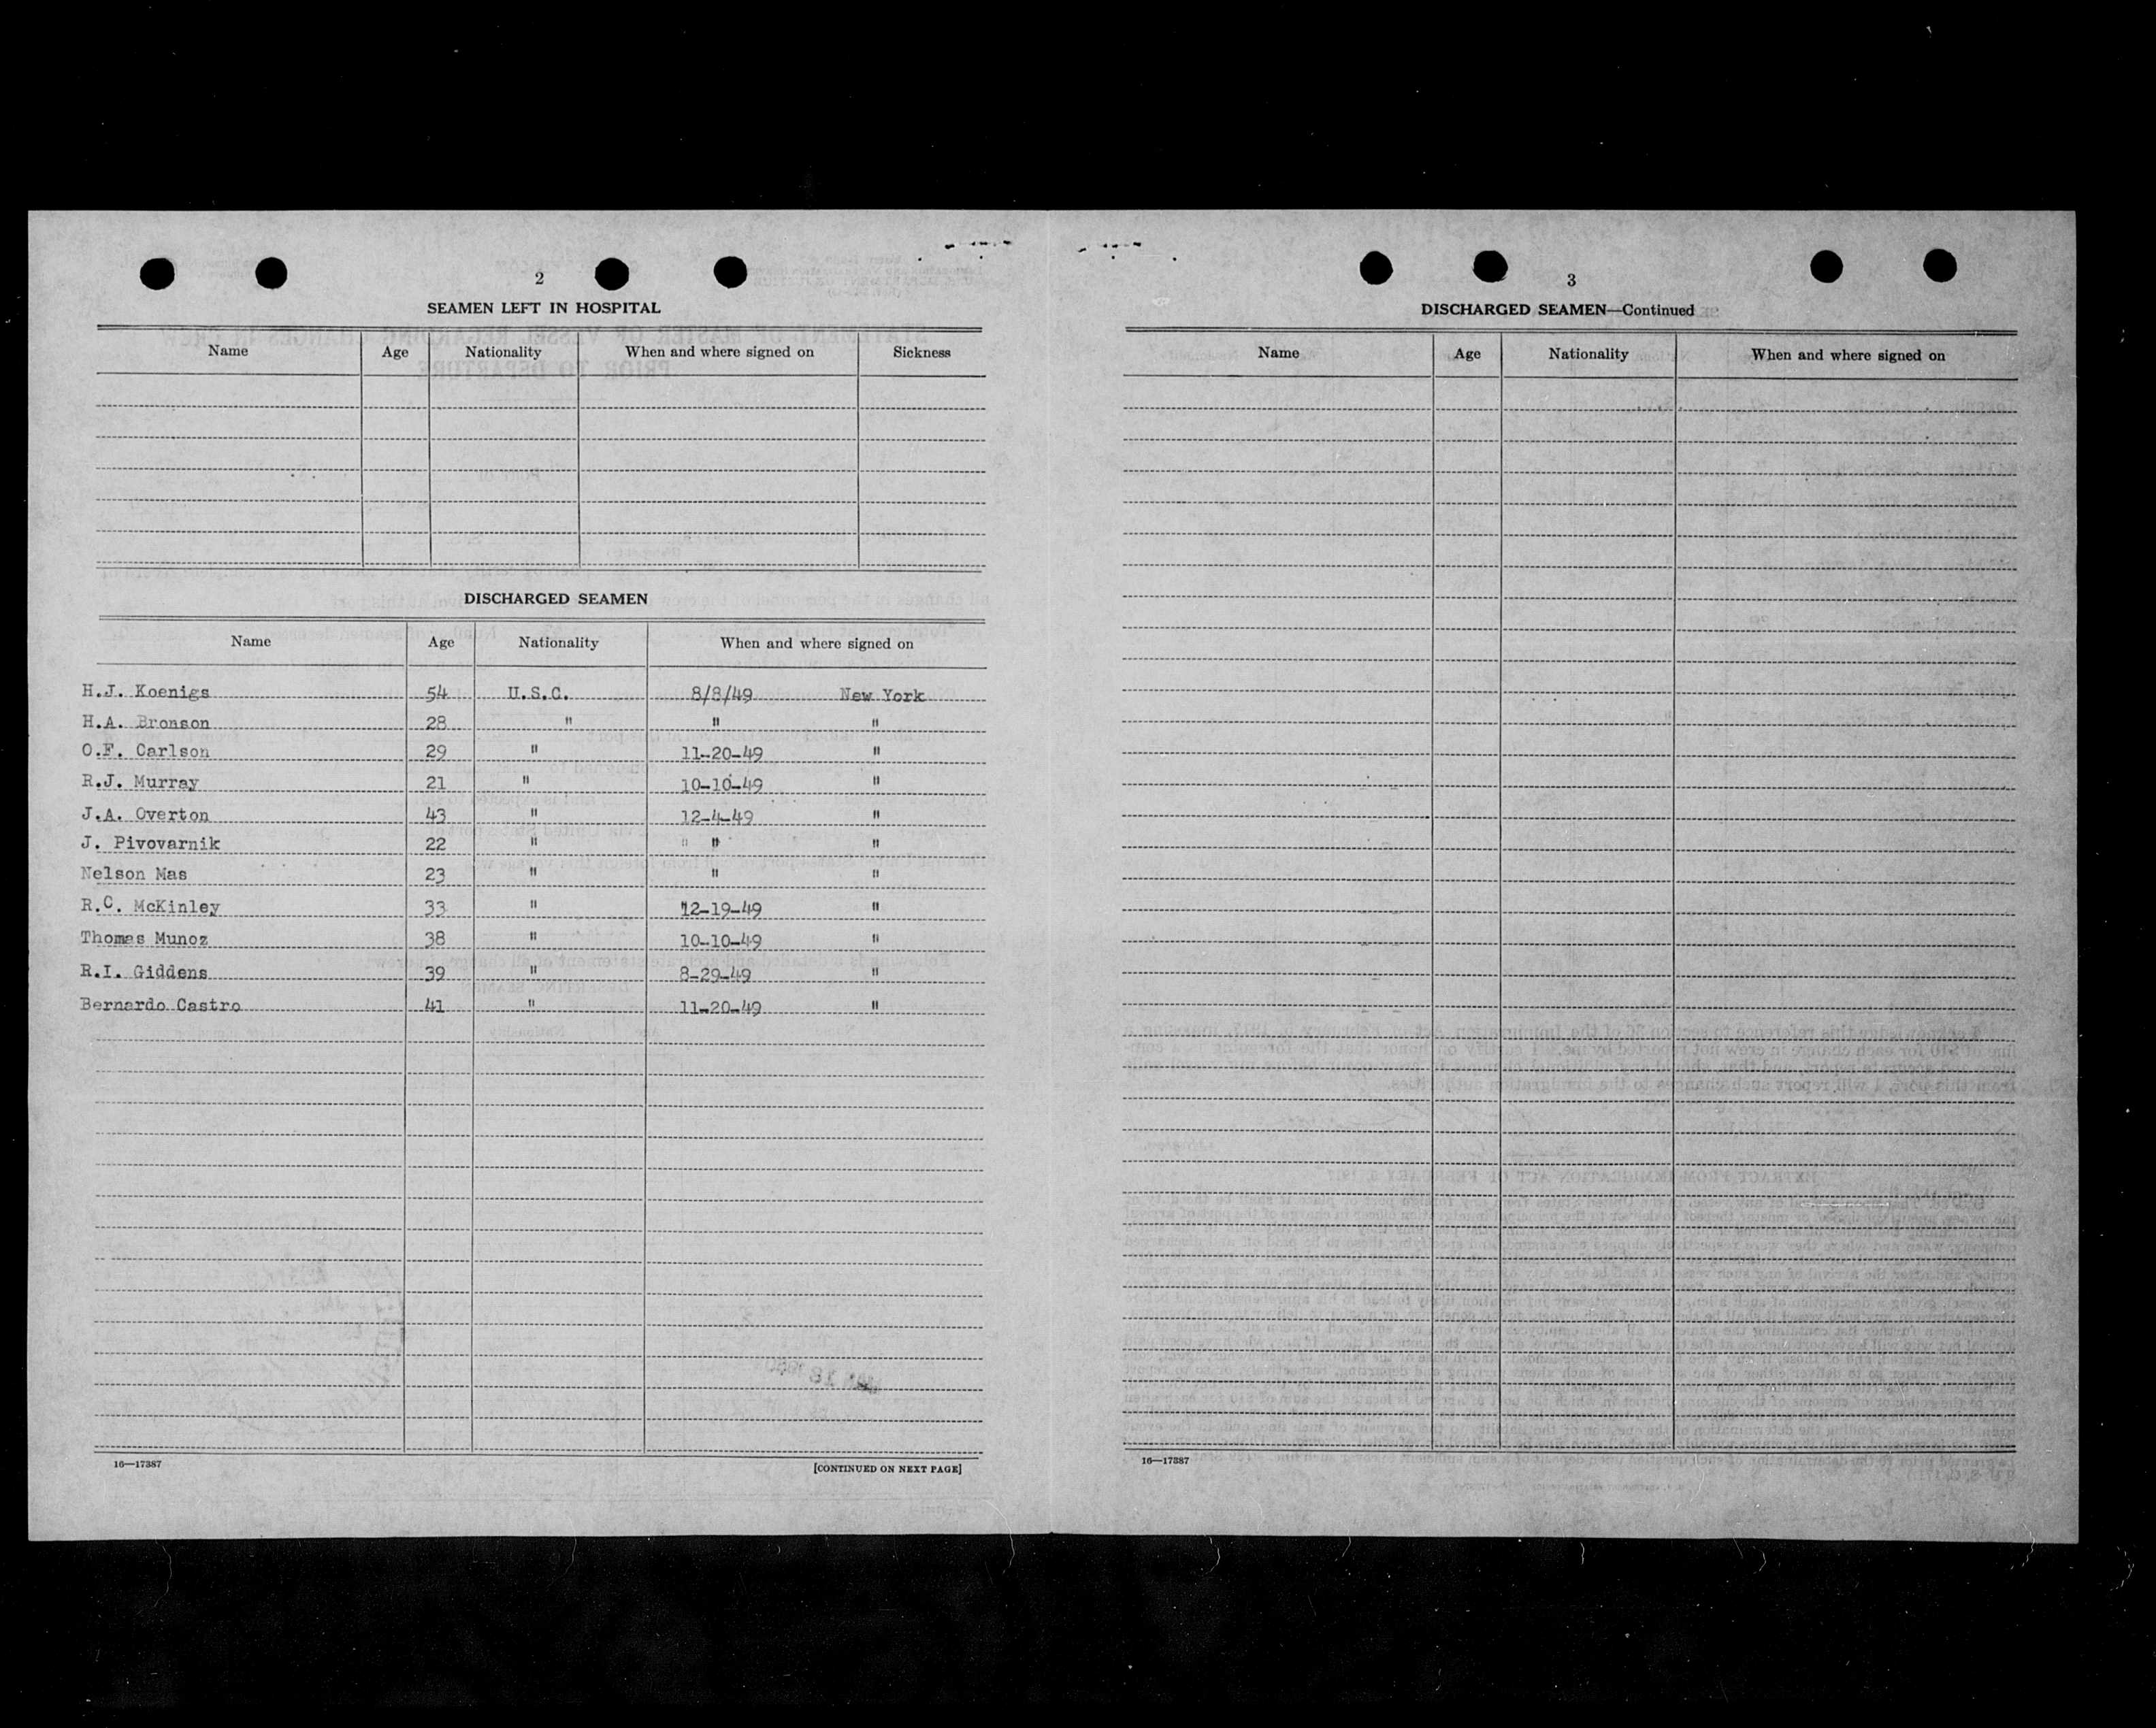 2
SEAMEN LEFT IN HOSPITAL
Name Age Nationality When and where signed on Sickness
DISCHARGED SEAMEN
Name Age Nationality When and where signed on
H.J. Koenigs 54 U.S.C. 8/8/49 New York
H.A. Bronson 28 " " "
O.F. Carlson 29 " 11-20-49 "
R.J. Murray 21 " 10-10-49 "
J.A. Overton 43 " 12-4-49 "
J. Pivovarnik 22 " " " "
Nelson Mas 23 " " "
R.C. McKinley 33 " 12-19-49 "
Thomas Munoz 38 " 10-10-49 "
R.I. Giddens 39 " 8-29-49 "
Bernardo Castro 41 " 11-20-49 "
16—17387 [CONTINUED ON NEXT PAGE]
3
DISCHARGED SEAMEN—Continued
Name Age Nationality When and where signed on
16—17387